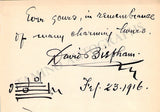 Ever yours, in remembrance
of many charming hours.
David Bispham.
Feb. 23. 1916.